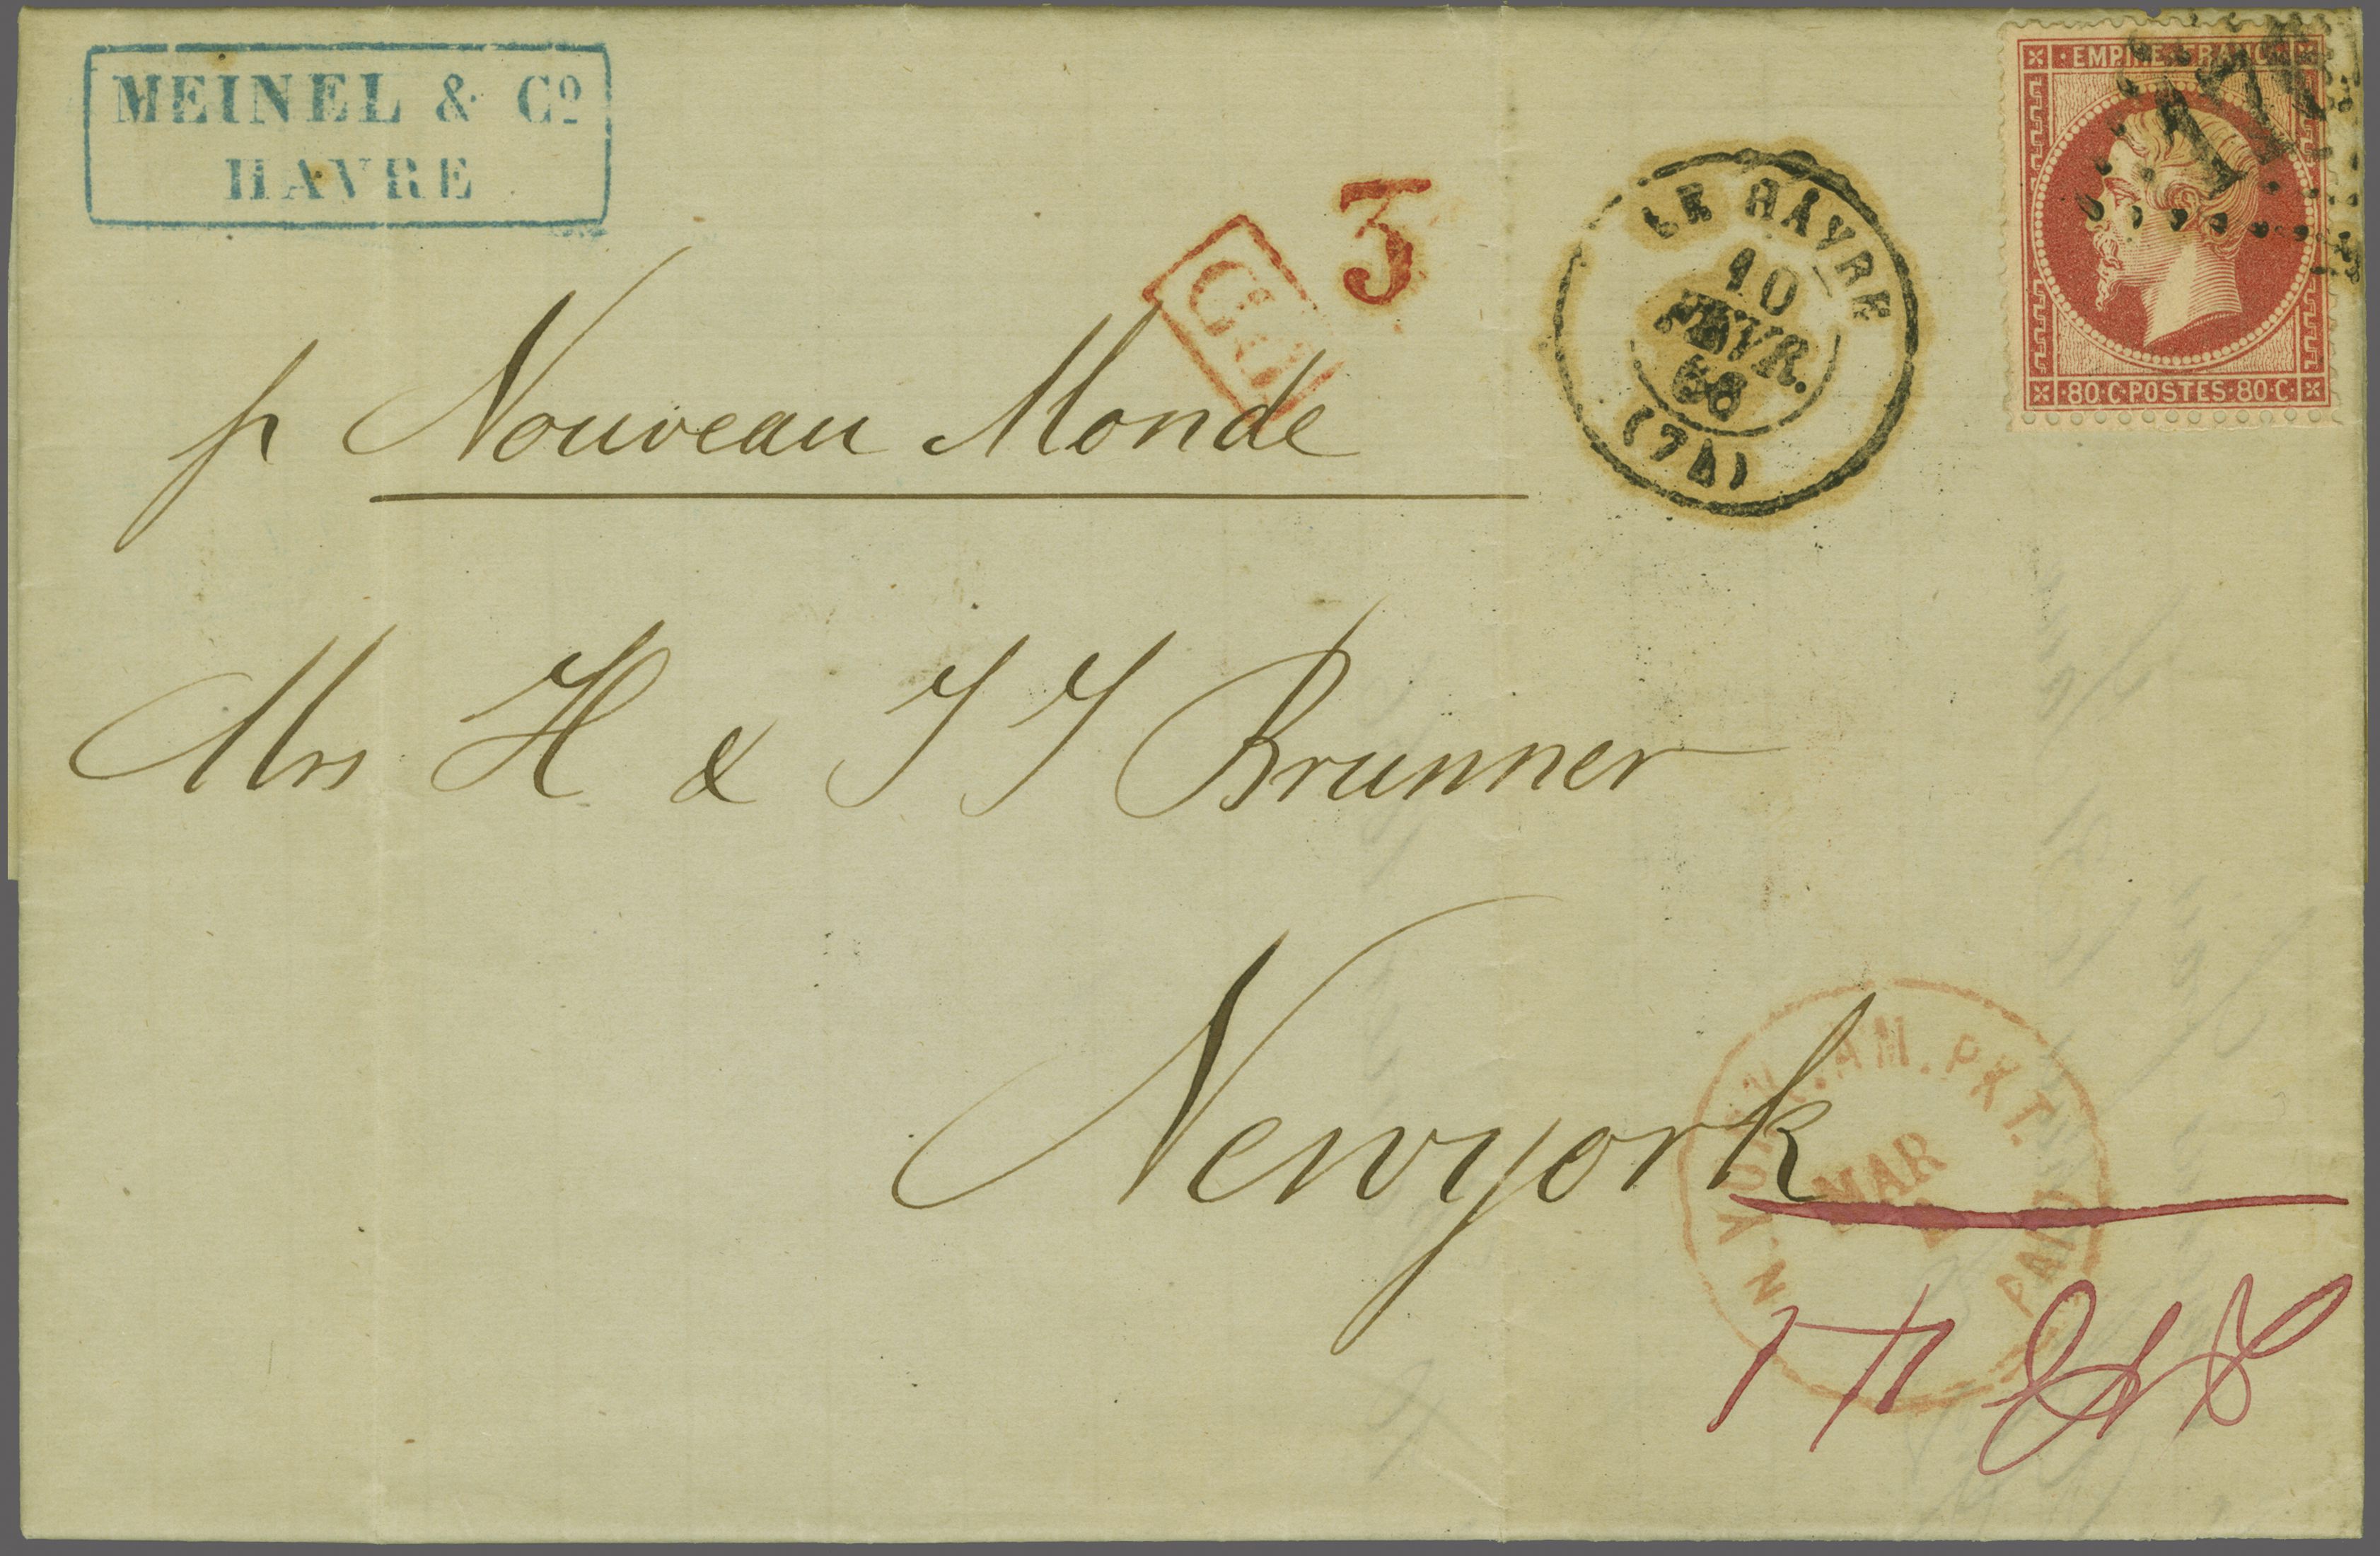 MEINEL & Cº
HAVRE
EMPIRE FRANC
80·C·POSTES·80·C
3
LE HAVRE
10
FEVR.
68
(74)
p Nouveau Monde
Mrs H & J J Brunner
Newyork
N. YORK AM. PKT.
MAR
PAID